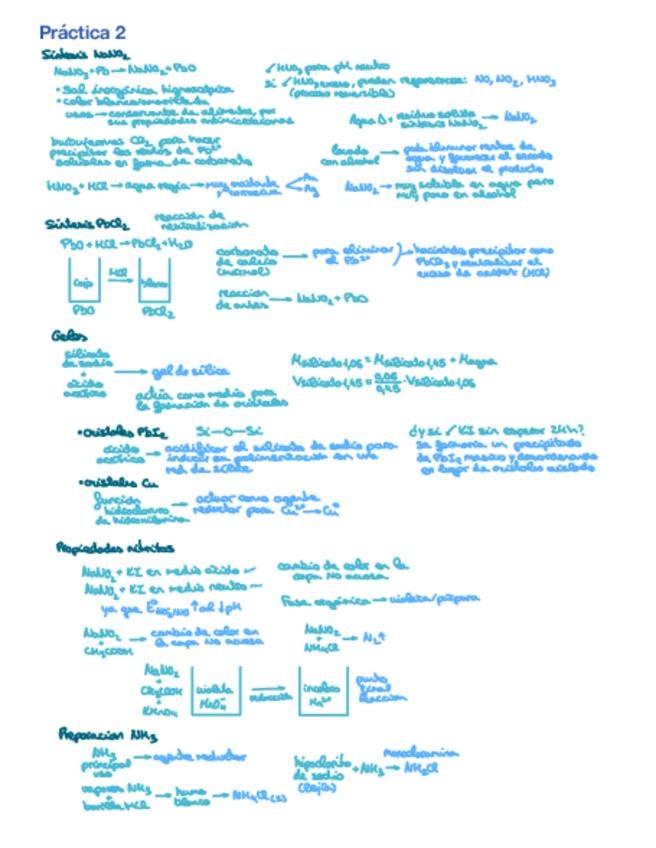 Práctica 2
Síntesis NaNO₂
NaNO₃ + Pb → NaNO₂ + PbO
• Sal inorgánica higroscópica
• color blanco/amarillento
usos → conservante de alimentos, por
sus propiedades antimicrobianas
✓ HNO₃ para pH neutro
si ✓ HNO₃ exceso, pueden regenerarse: NO, NO₂, HNO₃
(proceso reversible)
Agua Δ + residuo sólido síntesis NaNO₂ → NaNO₂
burbujeamos CO₂ para hacer
precipitar los restos de Pb²⁺
solubles en forma de carbonato
lavado con alcohol → para eliminar restos de
agua y favorecer el secado
sin disolver el producto
HNO₃ + HCl → agua regia → muy oxidante y corrosiva
Au
Ag
NaNO₂ → muy soluble en agua pero
muy poco en alcohol
Síntesis PbCl₂
reacción de
neutralización
PbO + HCl → PbCl₂ + H₂O
rojo
HCl
blanco
PbO
PbCl₂
carbonato
de calcio
(mármol)
→ para eliminar
el Pb²⁺
→ haciendo precipitar como
PbCl₂ y neutralizar el
exceso de (HCl)
reacción
de antes → NaNO₂ + PbO
Geles
silicato
de sodio
+
ácido
acético
→ gel de sílice
actúa como medio para
la formación de cristales
Msilicato 1,06 = Msilicato 1,45 + Magua
Vsilicato 1,45 = 0,06/0,45 · Vsilicato 1,06
• cristales PbI₂
Si—O—Si
ácido
acético → acidificar el silicato de sodio para
inducir su polimerización en una
red de sílice
¿y si ✓ KI sin esperar 24h?
se formaría un precipitado
de PbI₂ masivo y desordenado
en lugar de cristales aislados
• cristales Cu
función
hidrocloruro
de hidroxilamina
→ actuar como agente
reductor para Cu²⁺ → Cu⁰
Propiedades nitritos
NaNO₂ + KI en medio ácido ✓
NaNO₂ + KI en medio neutro —
ya que E°NO₂/NO ↑ al ↓pH
cambio de color en la
capa no acuosa
Fase orgánica → violeta/púrpura
NaNO₂
+
CH₃COOH
→ cambio de color en
la capa no acuosa
NaNO₂
+
NH₄Cl
→ N₂↑
NaNO₂
+
CH₃COOH
+
KMnO₄
violeta
MnO₄⁻
reducción
incoloro
Mn²⁺
punto
final
reacción
Preparación NH₃
NH₃
principal
uso
→ agente reductor
vapores NH₃
+
varilla HCl
→ humo
blanco → NH₄Cl (s)
hipoclorito
de sodio
(lejía)
+ NH₃ → NH₂Cl
monocloramina